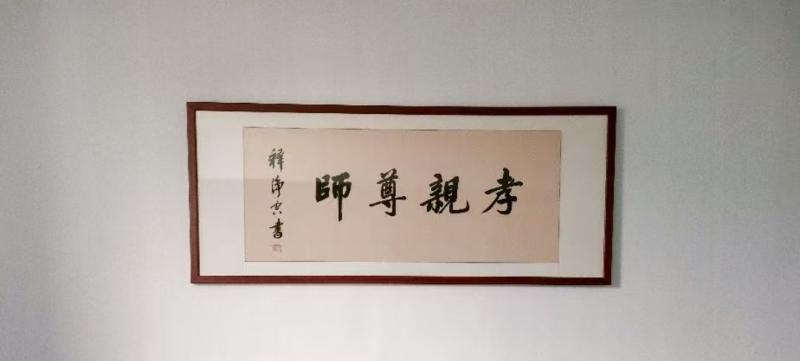 孝親尊師
釋淨空書